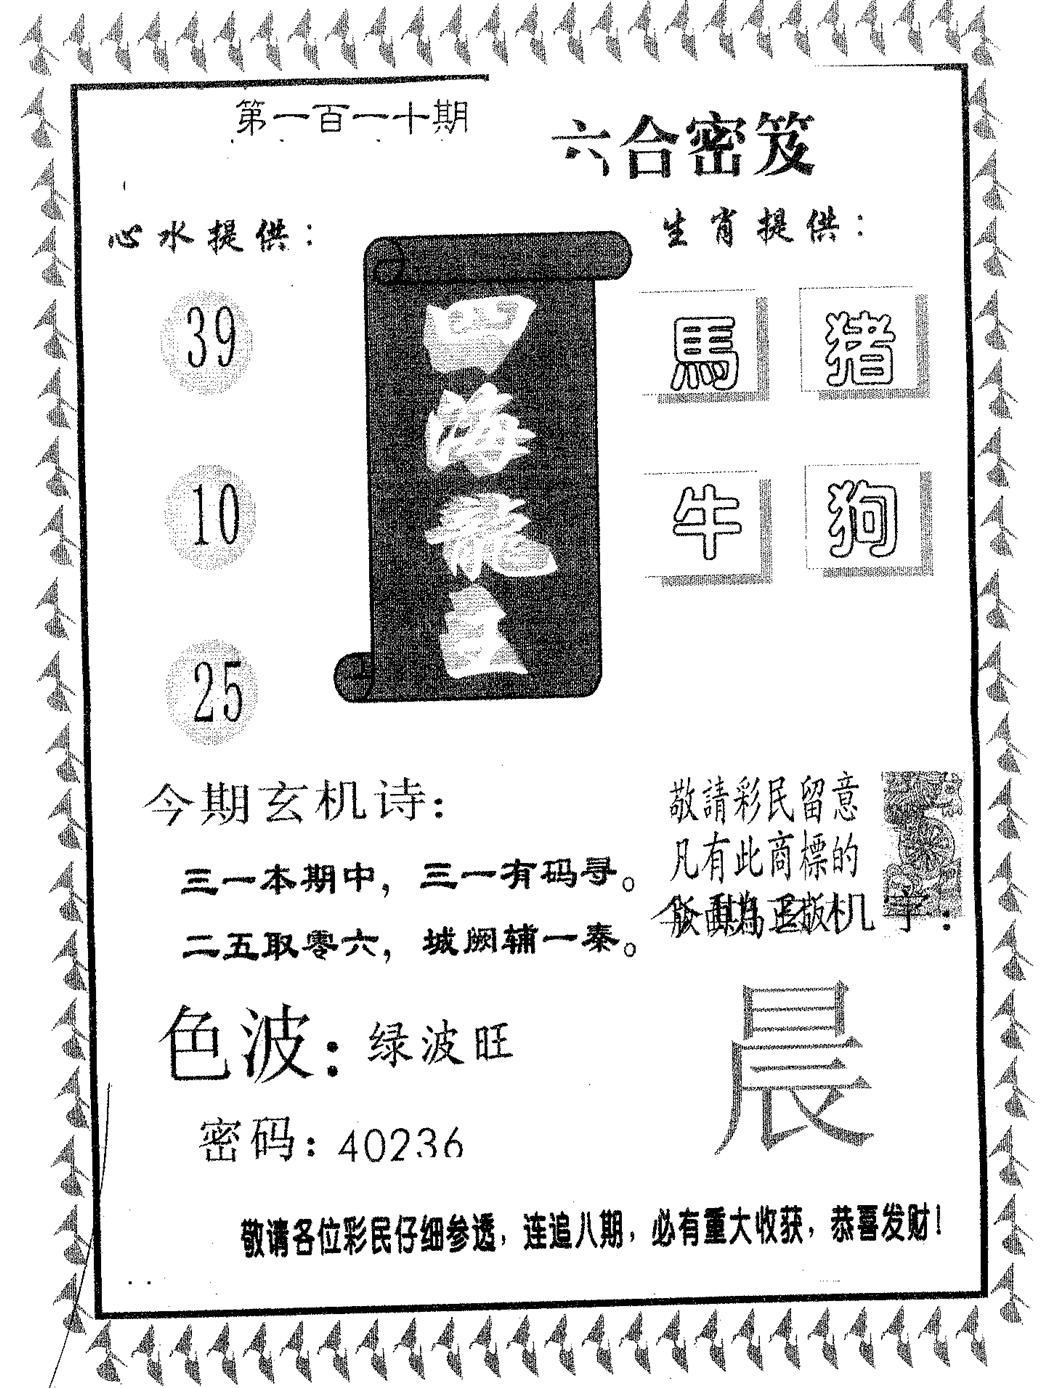 第一百一十期
六合密笈
心水提供：
生肖提供：
39
10
25
四海龍王
馬 猪
牛 狗
今期玄机诗：
三一本期中，三一有码寻。
二五取零六，城阙辅一秦。
敬請彩民留意
凡有此商標的
版面為正版
机字：
晨
色波：绿波旺
密码：40236
敬请各位彩民仔细参透，连追八期，必有重大收获，恭喜发财！